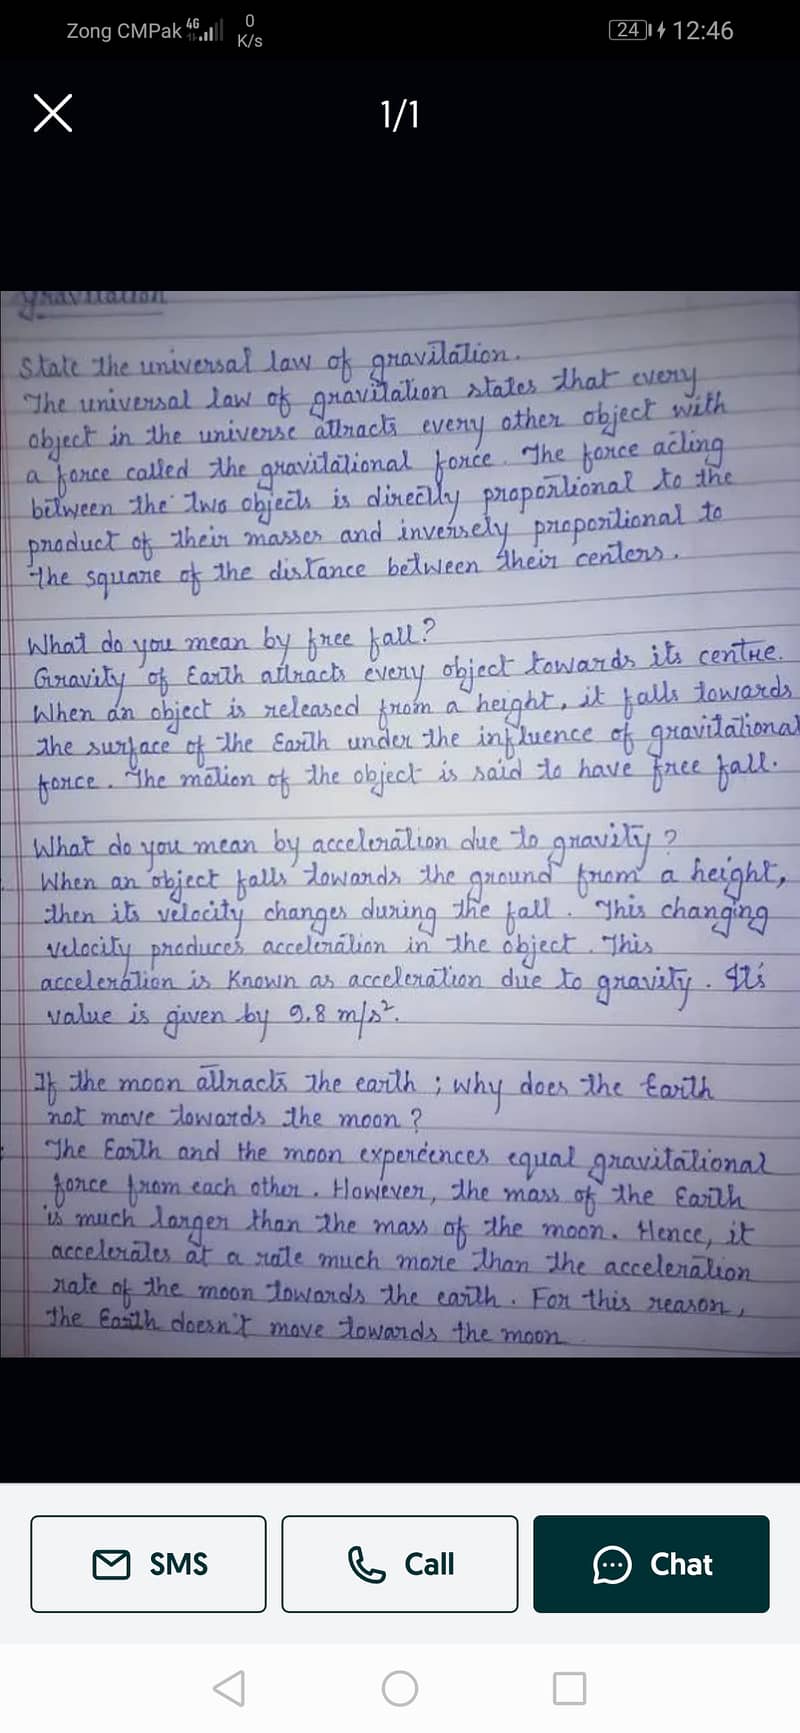 Zong CMPak 4G 0 K/s 24 12:46
1/1
gravitation
State the universal law of gravitation.
The universal law of gravitation states that every
object in the universe attracts every other object with
a force called the gravitational force. The force acting
between the two objects is directly proportional to the
product of their masses and inversely proportional to
the square of the distance between their centers.
What do you mean by free fall?
Gravity of Earth attracts every object towards its centre.
When an object is released from a height, it falls towards
the surface of the Earth under the influence of gravitational
force. The motion of the object is said to have free fall.
What do you mean by acceleration due to gravity?
When an object falls towards the ground from a height,
then its velocity changes during the fall. This changing
velocity produces acceleration in the object. This
acceleration is known as acceleration due to gravity. Its
value is given by 9.8 m/s².
If the moon attracts the earth; why does the Earth
not move towards the moon?
The Earth and the moon experéences equal gravitational
force from each other. However, the mass of the Earth
is much larger than the mass of the moon. Hence, it
accelerates at a rate much more than the acceleration
rate of the moon towards the earth. For this reason,
the Earth doesn't move towards the moon
SMS Call Chat